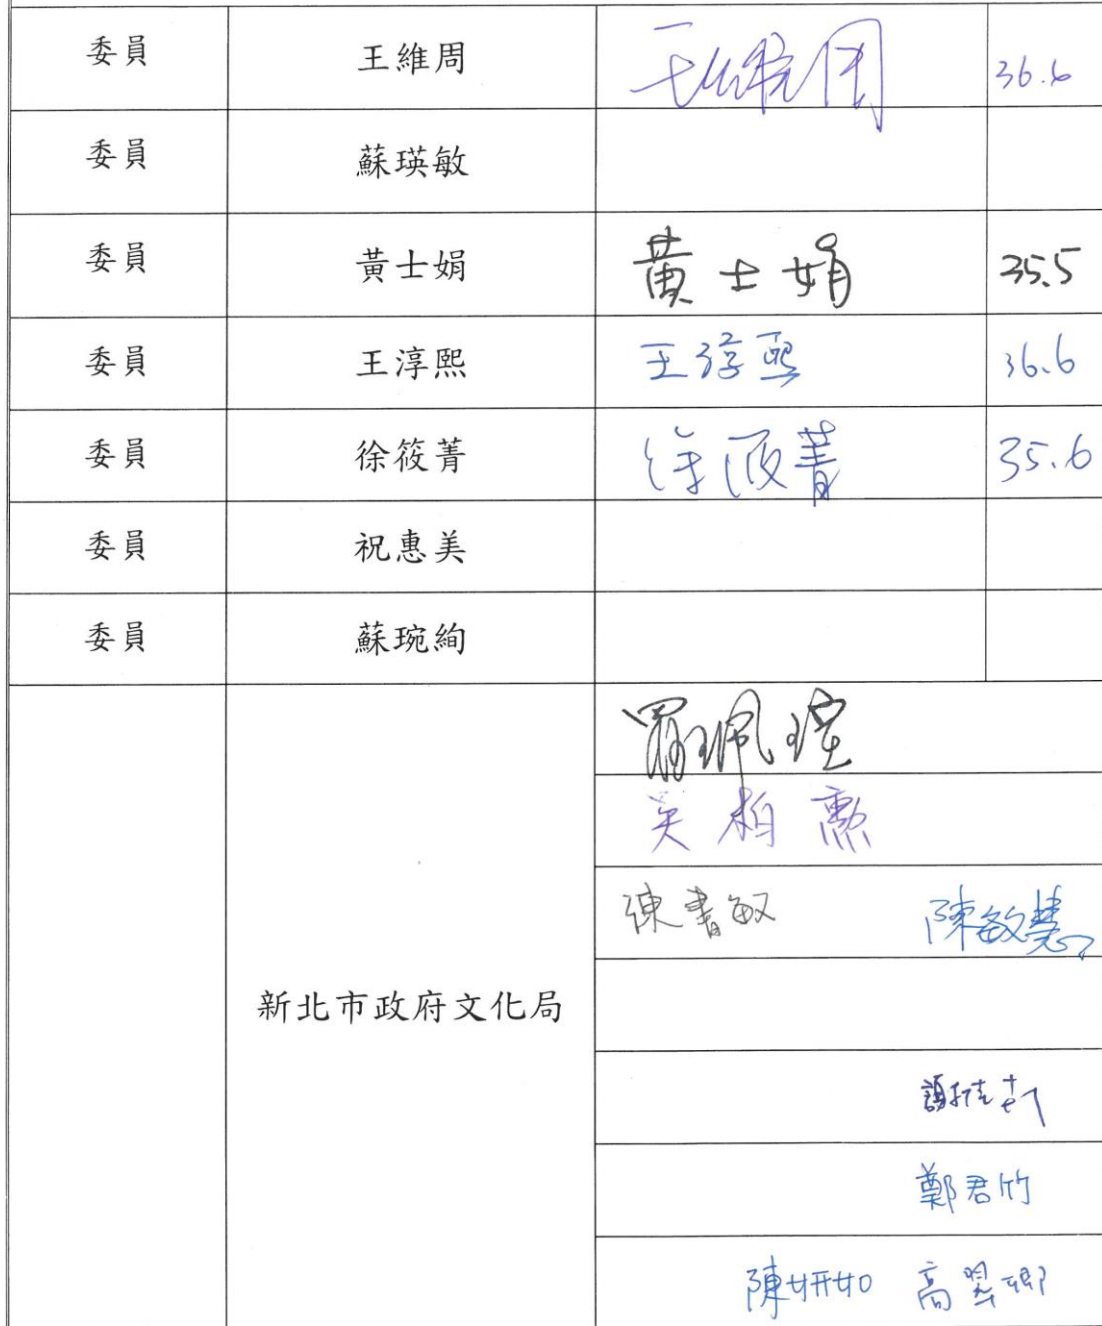 委員 王維周 王維周 36.6
委員 蘇瑛敏
委員 黃士娟 黃士娟 35.5
委員 王淳熙 王淳熙 36.6
委員 徐筱菁 徐筱菁 35.6
委員 祝惠美
委員 蘇琬絢
新北市政府文化局
羅珮瑄
吳柏勳
陳書敏 陳敏慧
鄭君竹
陳妍如 高翌